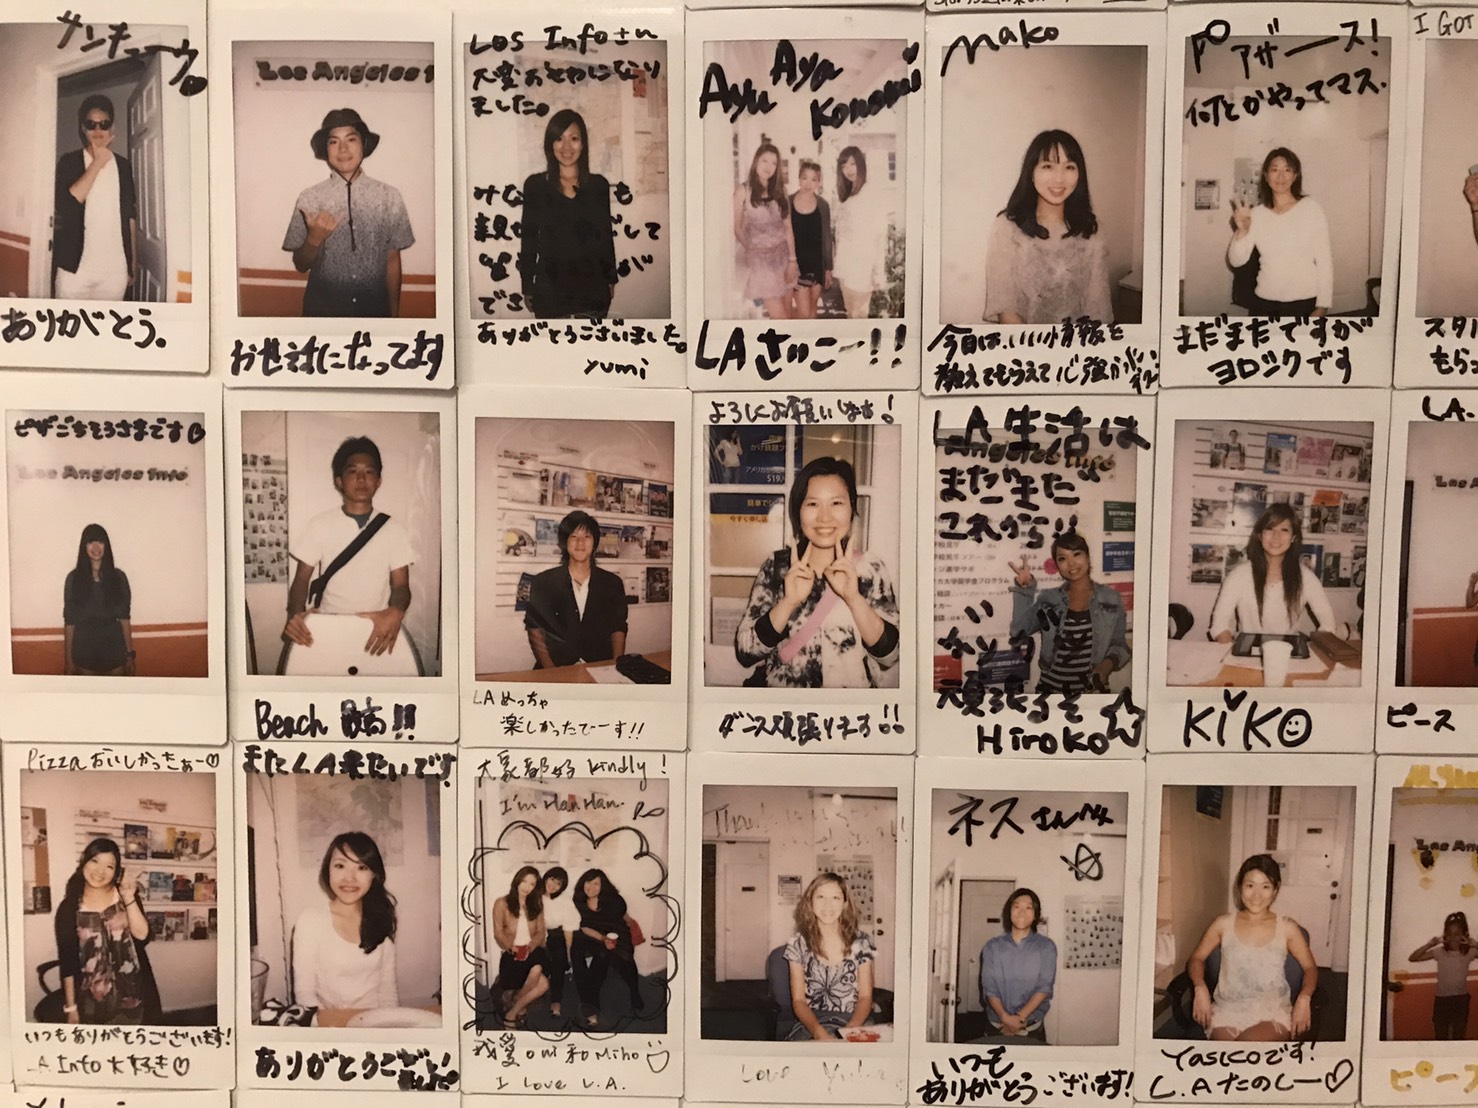 サンキューウ。
ありがとう。
Los Angeles I
お世話になってます
Los Infoさん
大変おせわになり
ました。
ありがとうございました。
yumi
Ayu Aya
Konomi
LAさいこー!!
nako
今日は、いい情報を
教えてもらえて心強かった
アザース!
何とかやってマス.
まだまだですが
ヨロシクです
I GOT
スタ
もらっ
ピザごちそうさまです♡
Los Angeles Info
Beach 最高!!
LAめっちゃ
楽しかったでーす!!
よろしくお願いします!
ダンス頑張ります!!
LA生活は
まだまだ
これから!!
頑張るぞ
Hiroko
KiKO
LA.
ピース
Pizzaおいしかったぁー♡
いつもありがとうございます!
LA Info大好き♡
またLA来たいです
ありがとうござい
ました。
大家都好 kindly!
I'm HanHan.
我愛 omi 和 Miho
I love L.A.
Love
ネスさん
いつも
ありがとうございます!
Yasukoです!
L.Aたのしー♡
Los Ang
ピース